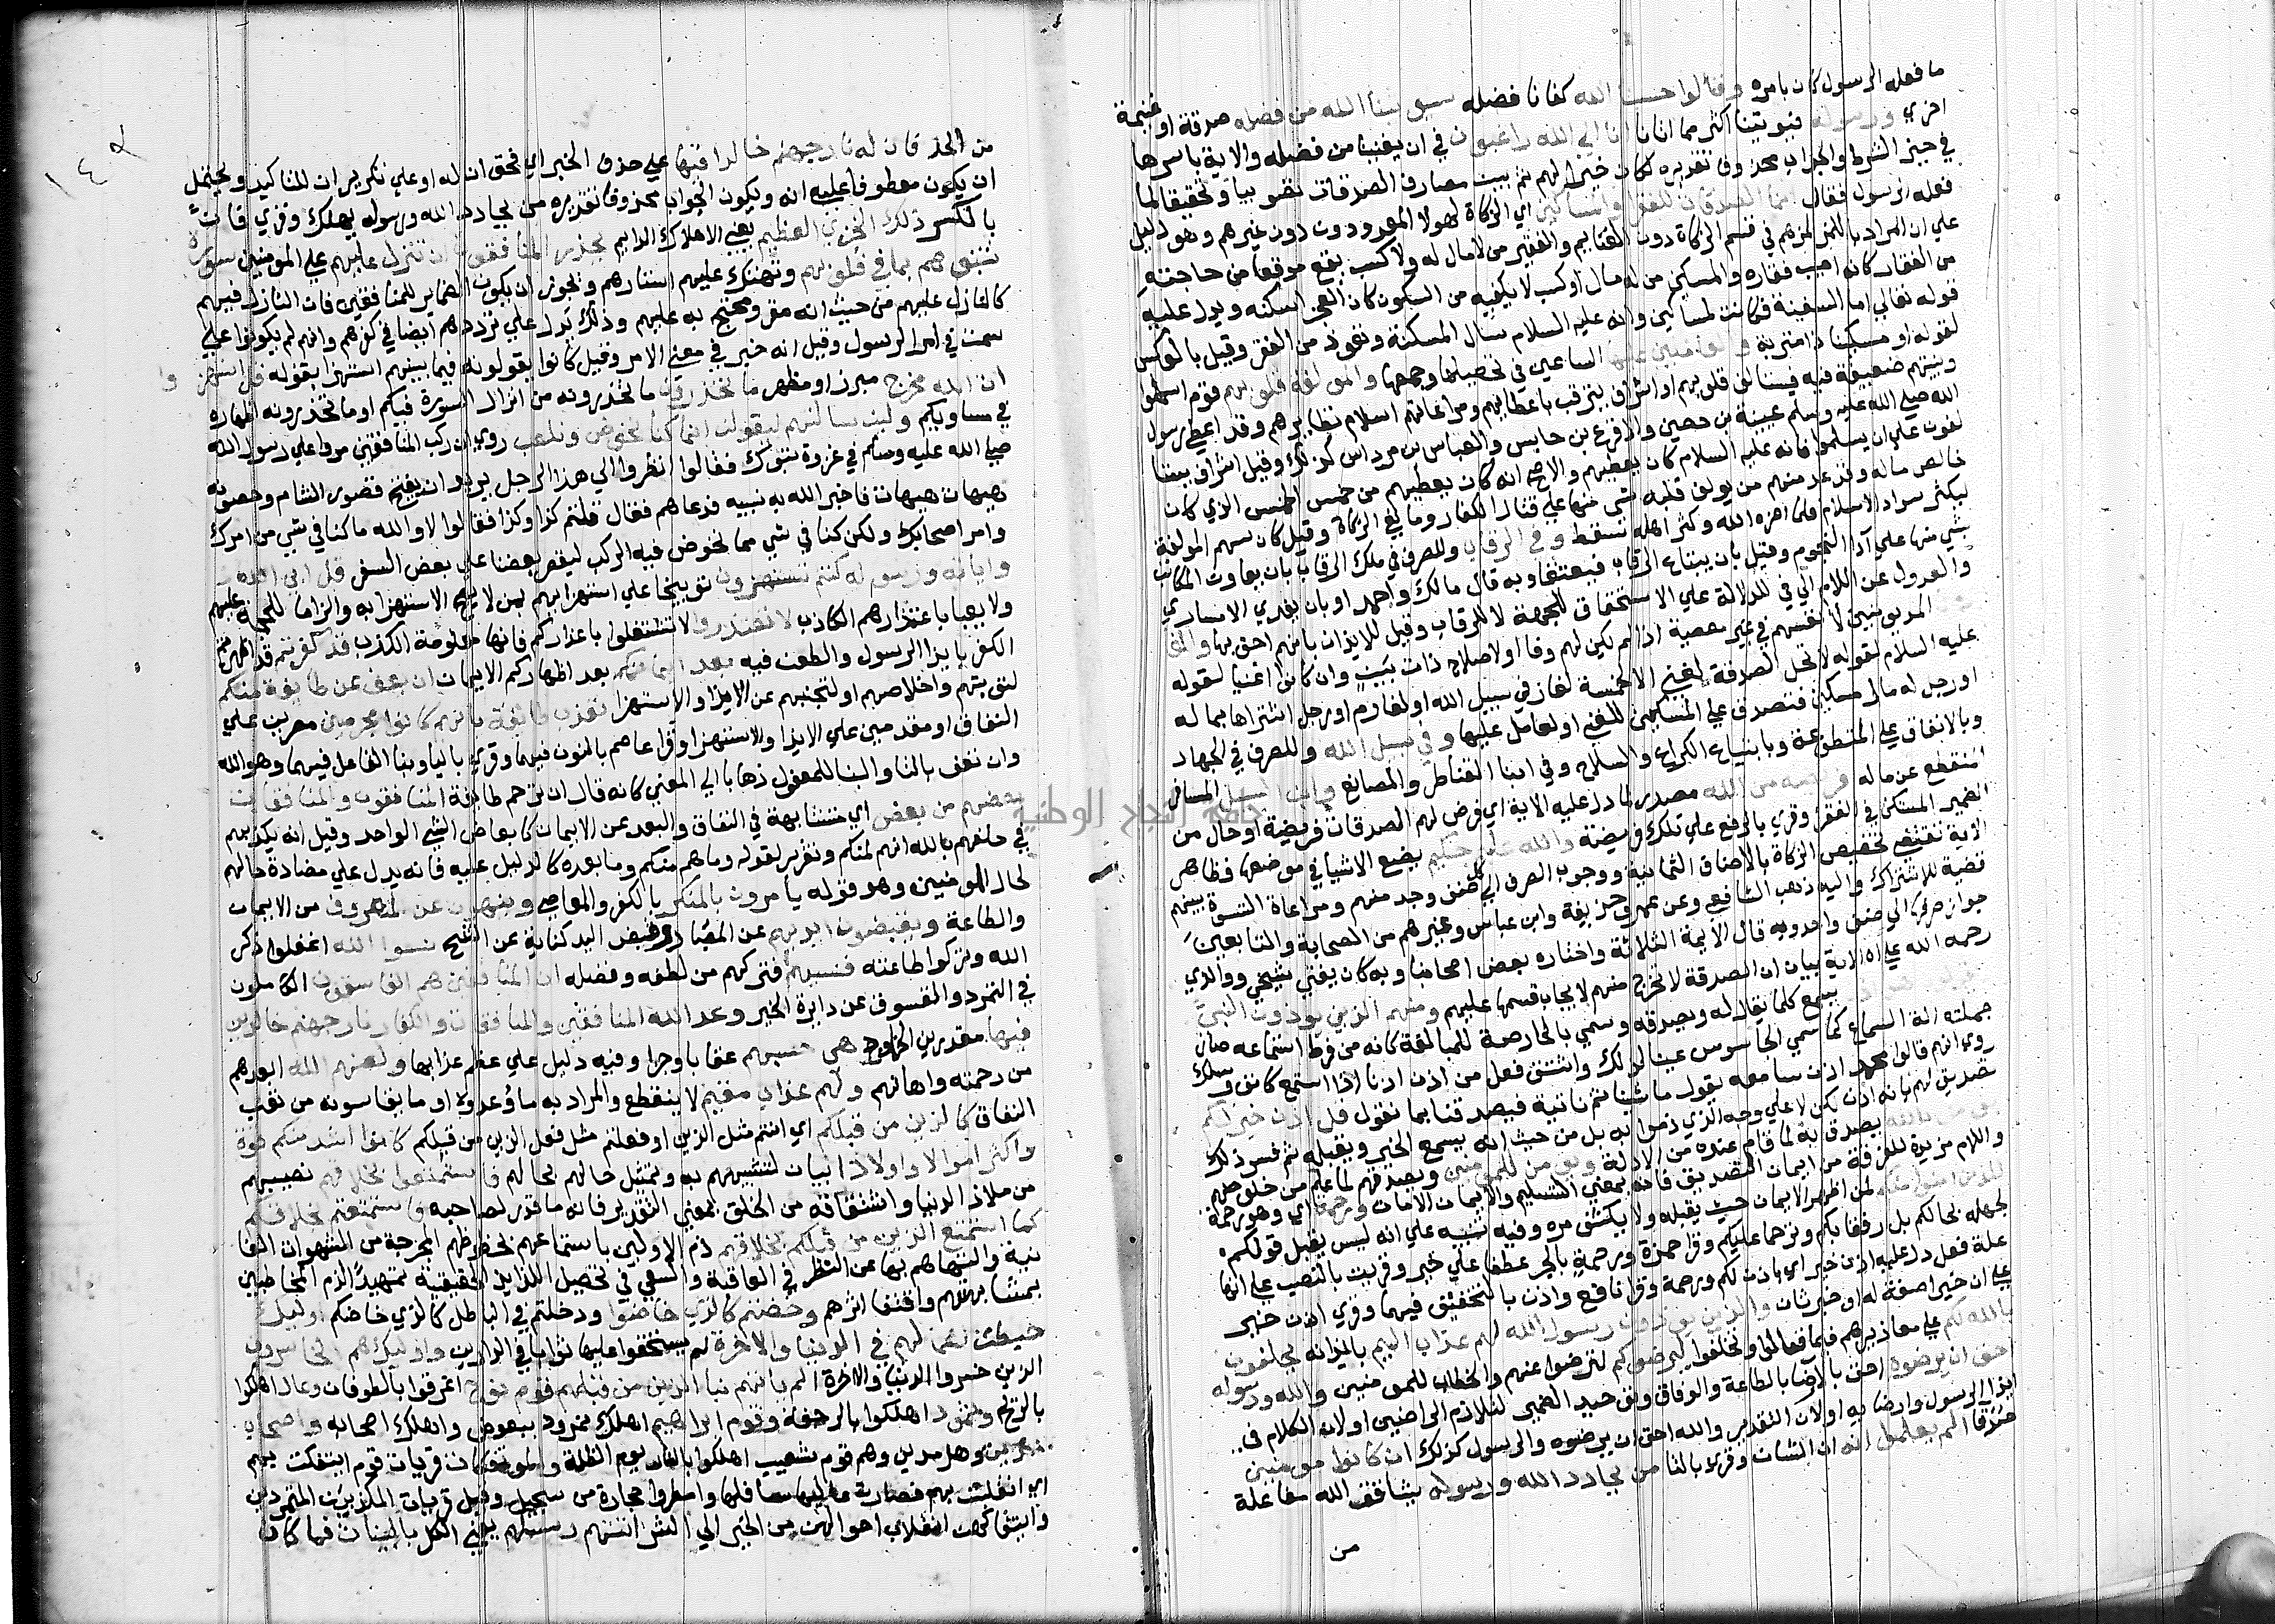 ما فعله الرسول كان بامره وقالوا حسبنا الله كفانا فضله سيوتينا الله من فضله صدقة او غنيمة
اخري ورسوله فيوتينا اكثر مما اتانا انا الي الله راغبون في ان يغنينا من فضله والاية باسرها
في حيز الشرط والجواب محذوف تقديره لكان خيرا لهم ثم بين مصارف الصدقات تصويبا وتحقيقا لما
فعله الرسول فقال انما الصدقات للفقرا والمساكين اي الزكاة لهولا المعدودون دون غيرهم وهو دليل
علي ان المراد باللمز لمزهم في قسم الزكاة دون الغنايم والفقير من لا مال له ولا كسب يقع موقعا من حاجته
من الفقار كانه اصيب فقاره والمسكين من له مال او كسب لا يكفيه من السكون كان العجز اسكنه ويدل عليه
قوله تعالي اما السفينة فكانت لمساكين وانه عليه السلام سال المسكنة وتعوذ من الفقر وقيل بالعكس
لقوله او مسكينا ذا متربة والعاملين عليها الساعين في تحصيلها وجمعها والمولفة قلوبهم قوم اسلموا
ونيتهم ضعيفة فيه فيستالف قلوبهم او اشراف يترقب باعطايهم ومراعاتهم اسلام نظايرهم وقد اعطي رسول
الله صلي الله عليه وسلم عيينة بن حصين والاقرع بن حابس والعباس بن مرداس كذلك وقيل اشراف يستا
لفون علي ان يسلموا فانه عليه السلام كان يعطيهم والاصح انه كان يعطيهم من خمس الخمس الذي كان
خالص ماله وقد عد منهم من يولف قلبه بشي منها علي قتال الكفار ومانعي الزكاة وقيل كان سهم المولفة
ليكثر سواد الاسلام فلما اعزه الله وكثر اهله سقط وفي الرقاب وللصرف في فك الرقاب بان يعاون المكاتب
بشي منها علي ادا النجوم وقيل بان يبتاع الرقاب فيعتقوا وبه قال مالك واحمد او بان يفدي الاساري
والعدول عن اللام الي في للدلالة علي الاستحقاق للجهة لا للرقاب وقيل للايذان بانهم احق بها والغا
المديونين لانفسهم في غير معصية اذا لم يكن لهم وفا او لاصلاح ذات بَيَنٍ وان كانوا اغنيا لقوله
عليه السلام لقوله لا تحل الصدقة لغني الا لخمسة لغاز في سبيل الله او لغارم او رجل اشتراها بماله
او رجل له مال مسكين فتصدق علي المسكين للغني او لعامل عليها وفي سبيل الله وللصرف في الجهاد
وبالانفاق علي المتطوعة وبابتياع الكراع والسلاح وفي ابنا القناطر والمصانع وابن السبيل المسافر
المنقطع عن ماله فريضة من الله مصدر لما دل عليه الاية اي فرض لهم الصدقات فريضة او حال من
الضمير المستكن في للفقرا وقري بالرفع علي تلك فريضة والله عليم حكيم يضع الاشيا في مواضعها وظاهر
الاية تقتضي تخصيص الزكاة بالاصناف الثمانية ووجوب الصرف الي كل صنف وجد منهم ومراعاة التسوية بينهم
قضية للاشتراك واليه ذهب الشافعي وعن عمر وحذيفة وابن عباس وغيرهم من الصحابة والتابعين
جواز صرفها الي صنف واحد وبه قال الايمة الثلاثة واختاره بعض اصحابنا وبه كان يفتي شيخي ووالدي
رحمه الله علي ان الاية بيان ان الصدقة لا تخرج منهم لا ايجاب قسمها عليهم ومنهم الذين يوذون النبي
يسمع كلما يقال له ويصدقه وسمي بالجارحة للمبالغة كانه من فرط استماعه صار
جملته الة السماع كما سمي الجاسوس عينا لذلك واشتق فعل من اذن اذنا اذا استمع كانف وسلل
روي انهم قالوا محمد اذن سامعه نقول ما شينا ثم ناتيه فيصدقنا بما نقول قل اذن خير لكم
تصديق لهم بانه اذن لكن لا علي وجه الذي ذموا به بل من حيث انه يسمع الخير ويقبله ثم فسر ذلك
يومن بالله يصدق به لما قام عنده من الادلة ويومن للمومنين ويصدقهم لما علم من خلوصهم
واللام مزيدة للتفرقة من ايمان التصديق فانه بمعني التسليم والايمان الامان ورحمة اي وهو رحمة
للذين امنوا منكم لمن اظهر الايمان حيث يقبله ولا يكشف سره وفيه تنبيه علي انه ليس يقبل قولكم
لجهله بحالكم بل رفقا بكم وترحما عليكم وقرا حمزة ورحمةٍ بالجر عطفا علي خير وقريت بالنصب علي انها
علة فعل دل عليه اذن خير اي ياذن لكم ورحمة وقرا نافع واذن بالتخفيف فيهما وقري اذن خير
علي ان خير اصفة له او خبر ثان والذين يوذون رسول الله لهم عذاب اليم بالايذانه يحلفون
بالله لكم علي معاذيرهم فيما قعالوا وتخلفوا ليرضوكم لترضوا عنهم والخطاب للمومنين والله ورسوله
احق ان يرضوه احق بالارضا بالطاعة والوفاق وتوحيد الضمير لتلازم الرضايين او لان الكلام في
ايذا الرسول وارضايه او لان التقدير والله احق ان يرضوه والرسول كذلك ان كانوا مومنين
صدقا الم يعلموا انه ان الشان وقري بالتا من يحادد الله ورسوله يشاقق الله مفاعلة
من
١٤٨
من الحد فان له نار جهنم خالدا فيها علي حذف الخبر اي فحق ان له او علي تكرير ان للتاكيد ويحتمل
ان يكون معطوفا عليه انه ويكون الجواب محذوفا تقديره من يحادد الله ورسوله يهلك وقري فان
بالكسر ذلك الخزي العظيم يعني الاهلاك الدايم يحذر المنافقون ان تنزل عليهم علي المومنين سورة
تنبيهم بما في قلوبهم وتهتك عليهم استارهم ويجوز ان يكون الضماير للمنافقين فان النازل فيهم
كالنازل عليهم من حيث انه مقرو ومحتج به عليهم وذلك يدل علي ترددهم ايضا في كفرهم وانهم لم يكونوا علي
سمت في امر الرسول وقيل انه خبر في معني الامر وقيل كانوا يقولونه فيما بينهم استهزا بقوله قل استهزوا
ان الله مخرج مبرز او مظهر ما تحذرون ما تحذرونه من انزال السورة فيكم او ما تحذرونه اظهاره
في مساويكم ولين سالتهم ليقولن انما كنا نخوض ونلعب روي ان ركب المنافقين مروا علي رسول الله
صلي الله عليه وسلم في غزوة تبوك فقالوا انظروا الي هذا الرجل يريد ان يفتح قصور الشام وحصونه
هيهات هيهات فاخبر الله به نبيه فدعاهم فقال قلتم كذا وكذا فقالوا لا والله ما كنا في شي من امرك
وامر اصحابك ولكن كنا في شي مما يخوض فيه الركب ليقصر بعضنا علي بعض السفر قل ابالله
واياته ورسوله كنتم تستهزون توبيخا علي استهزايهم بمن لا يصح الاستهزا به والزاما للحجة عليهم
ولا يعبا باعتذارهم الكاذب لا تعتذروا لا تشتغلوا باعذاركم فانها معلومة الكذب قد كفرتم قد اظهرتم
الكفر بايذا الرسول والطعن فيه بعد ايمانكم بعد اظهاركم الايمان ان يعف عن طايفة منكم
لتوبتهم واخلاصهم او لتجنبهم عن الايذا والاستهزا نعذب طايفة بانهم كانوا مجرمين مصرين علي
النفاق او مقدمين علي الايذا والاستهزا وقرا عاصم بالنون فيهما وقري باليا وبنا الفاعل فيهما وهو الله
وان تعف بالتا والبنا للمفعول ذهابا الي المعني كانه قال ان ترحم طايفة المنافقون والمنافقات
بعضهم من بعض اي متشابهة في النفاق والبعد عن الايمان كابعاض الشي الواحد وقيل انه تكذيبهم
في حلفهم بالله انهم لمنكم وتقرير لقوله وما هم منكم وما بعده كالدليل عليه فانه يدل علي مضادة حالهم
لحال المومنين وهو قوله يامرون بالمنكر بالكفر والمعاصي وينهون عن المعروف من الايمان
والطاعة ويقبضون ايديهم عن المبار وقبض اليد كناية عن الشح نسوا الله اغفلوا ذكر
الله وتركوا طاعته فنسيهم فتركهم من لطفه وفضله ان المنافقين هم الفاسقون الكاملون
في التمرد والفسوق عن دايرة الخير وعد الله المنافقين والمنافقات والكفار نار جهنم خالدين
فيها مقدرين الخلود هي حسبهم عقابا وجزا وفيه دليل علي عظم عذابها ولعنهم الله ابعدهم
من رحمته واهانهم ولهم عذاب مقيم لا ينقطع والمراد به ما وُعدوه او ما يقاسونه من تعب
النفاق كالذين من قبلكم اي انتم مثل الذين او فعلتم مثل فعل الذين من قبلكم كانوا اشد منكم قوة
واكثر اموالا واولادا بيان لتشبيههم به وتمثيل حالهم بحالهم فاستمتعوا بخلاقهم نصيبهم
من ملاذ الدنيا واشتقاقه من الخلق بمعني التقدير فانه ما قدر لصاحبه فاستمتعتم بخلاقكم
كما استمتع الذين من قبلكم بخلاقهم ذم الاولين باستماعهم بحظوظهم المخرجة من الشهوات الفا
نية والتهاهم بها عن النظر في العاقبة والسعي في تحصيل اللذايذ الحقيقية تمهيدا لذم المخاطبين
بمشابهتهم واقتفا اثرهم وخضتم كالذي خاضوا ودخلتم في الباطل كالذي خاضكم اوليك
حبطت اعمالهم في الدنيا والاخرة لم يستحقوا عليها ثوابا في الدارين واوليك هم الخاسرون
الذين خسروا الدنيا والاخرة الم ياتهم نبا الذين من قبلهم قوم نوح اغرقوا بالطوفان وعاد اهلكوا
بالريح وثمود اهلكوا بالرجفة وقوم ابراهيم اهلك نمرود ببعوض واهلك اصحابه واصحاب
مدين واهل مدين وهم قوم شعيب اهلكوا بالنار يوم الظلة والموتفكات قريات قوم ايتفكت بهم
اي انقلبت بهم فصارت عاليها سافلها وامطروا حجارة من سجيل وقيل قريات المكذبين المتمردين
وايتفاكهن انقلاب احوالهن من الخير الي الشر اتتهم رسلهم يعني الكل بالبينات فما كان
جامعة النجاح الوطنية